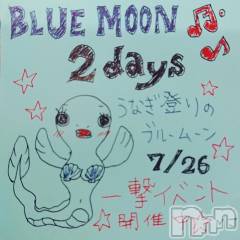 BLUE MOON
2days
うなぎ登りの
ブルームーン
7/26
一撃イベント
開催